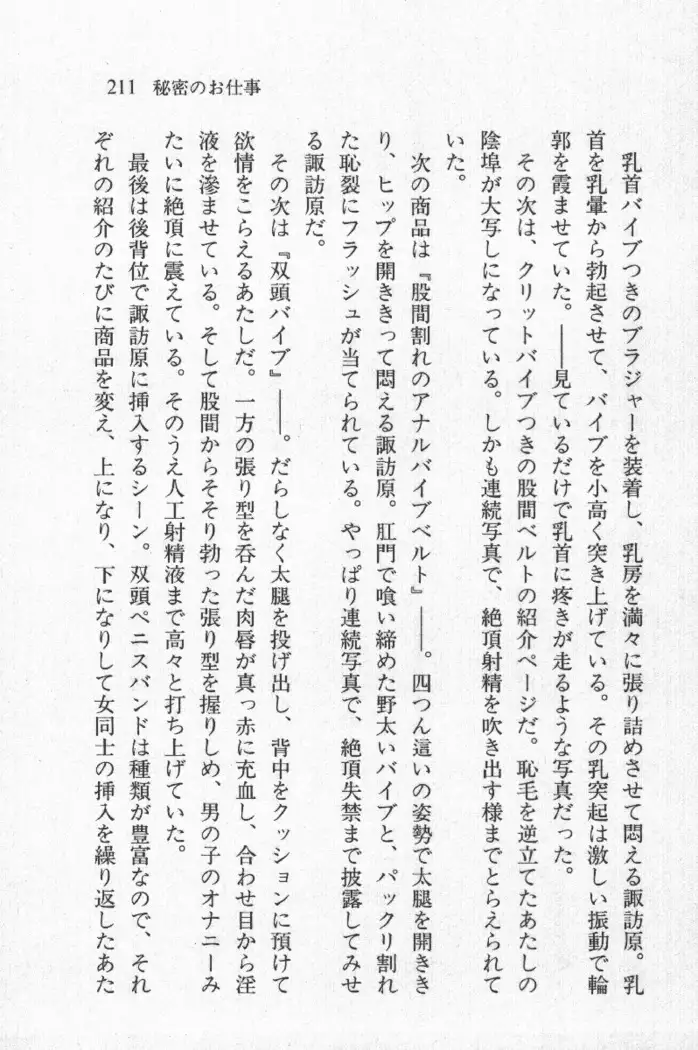 211 秘密のお仕事
乳首バイブつきのブラジャーを装着し、乳房を満々に張り詰めさせて悶える諏訪原。乳
首を乳暈から勃起させて、バイブを小高く突き上げている。その乳突起は激しい振動で輪
郭を霞ませていた。――見ているだけで乳首に疼きが走るような写真だった。
その次は、クリットバイブつきの股間ベルトの紹介ページだ。恥毛を逆立てたあたしの
陰埠が大写しになっている。しかも連続写真で、絶頂射精を吹き出す様までとらえられて
いた。
次の商品は『股間割れのアナルバイブベルト』――。四つん這いの姿勢で太腿を開きき
り、ヒップを開ききって悶える諏訪原。肛門で喰い締めた野太いバイブと、パックリ割れ
た恥裂にフラッシュが当てられている。やっぱり連続写真で、絶頂失禁まで披露してみせ
る諏訪原だ。
その次は『双頭バイブ』――。だらしなく太腿を投げ出し、背中をクッションに預けて
欲情をこらえるあたしだ。一方の張り型を呑んだ肉唇が真っ赤に充血し、合わせ目から淫
液を滲ませている。そして股間からそそり勃った張り型を握りしめ、男の子のオナニーみ
たいに絶頂に震えている。そのうえ人工射精液まで高々と打ち上げていた。
最後は後背位で諏訪原に挿入するシーン。双頭ペニスバンドは種類が豊富なので、それ
ぞれの紹介のたびに商品を変え、上になり、下になりして女同士の挿入を繰り返したあた